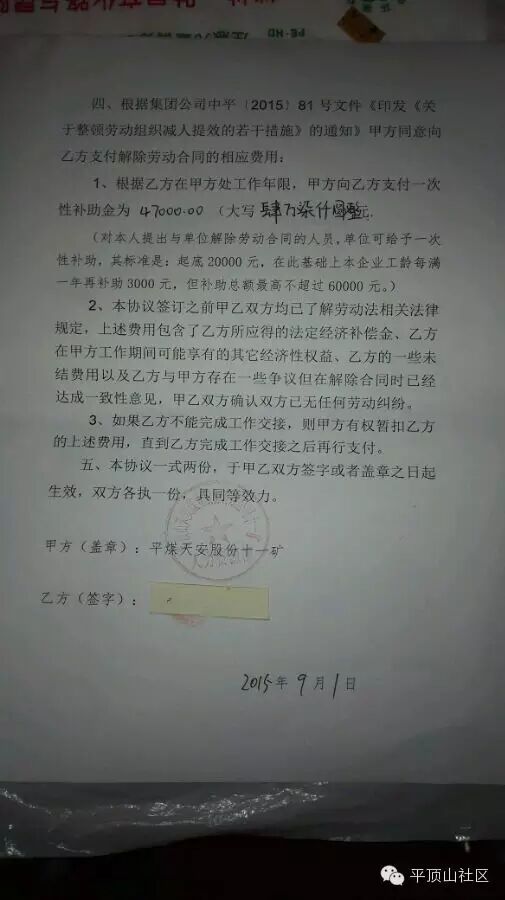 PE-HD
四、根据集团公司中平〔2015〕81号文件《印发《关
于整顿劳动组织减人提效的若干措施》的通知》甲方同意向
乙方支付解除劳动合同的相应费用：
1、根据乙方在甲方处工作年限，甲方向乙方支付一次
性补助金为 47000.00 (大写 肆万柒仟圆整元.
(对本人提出与单位解除劳动合同的人员，单位可给予一次
性补助，其标准是：起底 20000 元，在此基础上本企业工龄每满
一年再补助 3000 元，但补助总额最高不超过 60000 元。)
2、本协议签订之前甲乙双方均已了解劳动法相关法律
规定，上述费用包含了乙方所应得的法定经济补偿金、乙方
在甲方工作期间可能享有的其它经济性权益、乙方的一些未
结费用以及乙方与甲方存在一些争议但在解除合同时已经
达成一致性意见，甲乙双方确认双方已无任何劳动纠纷。
3、如果乙方不能完成工作交接，则甲方有权暂扣乙方
的上述费用，直到乙方完成工作交接之后再行支付。
五、本协议一式两份，于甲乙双方签字或者盖章之日起
生效，双方各执一份，具同等效力。
甲方（盖章）：平煤天安股份十一矿
乙方（签字）：
2015年 9月 1日
平顶山社区